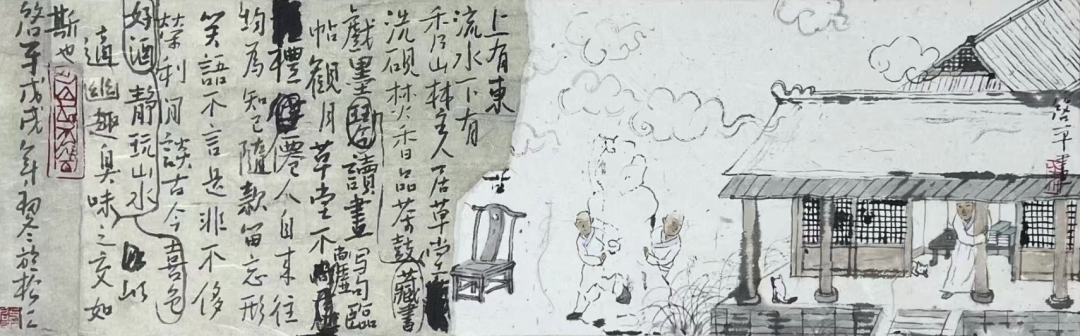 啓平畫
上有東
流水下有
香山林主人居草堂
洗硯焚香品茶鼓藏書
戲墨讀畫寫句臨
帖觀月草堂不尚虛
禮人自來往
均為知己隨款留忘形
笑語不言是非不侈
榮利間談古今喜色
好酒靜玩山水以
適幽趣臭味之交如
斯也
啓平戊戌年初冬於松江